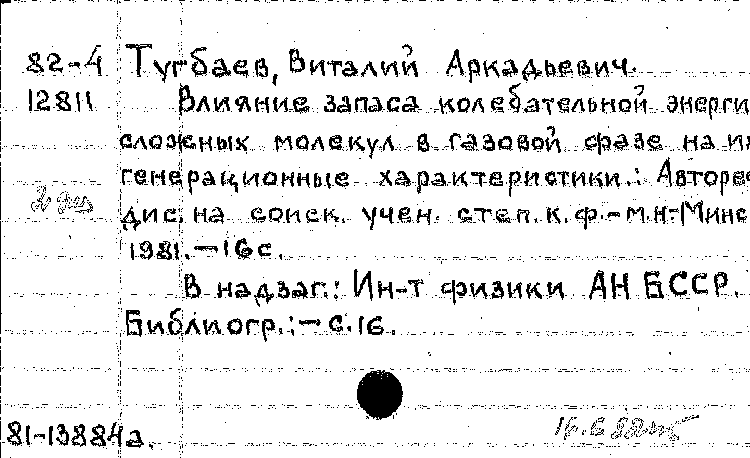 82-4 Тугбаев, Виталий Аркадьевич.
12811 Влияние запаса колебательной энерги
сложных молекул в газовой фазе на их
генерационные характеристики.: Авторе
2 экз
дис. на соиск. учен. степ. к.ф.-м.н.-Минс
1981.-16с.
В надзаг.: Ин-т физики АН БССР.
Библиогр.:-с.16.
81-13884а.